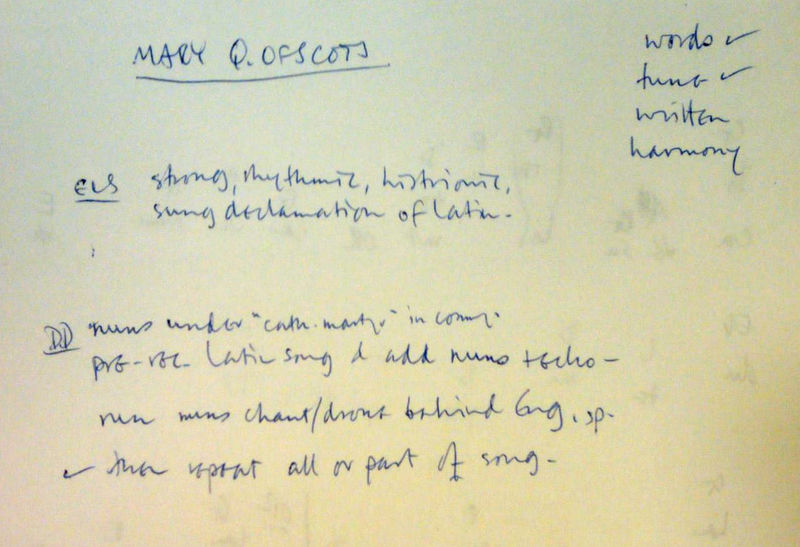 MARY Q. OF SCOTS
words ✓
tune ✓
written
harmony
ELS strong, rhythmic, histrionic,
sung declamation of Latin.
DD nuns under "cath. martyr" in comm.
pre-rec. Latin song & add nuns + echo -
run nuns chant/drone behind Eng. sp.
✓ then repeat all or part of song.